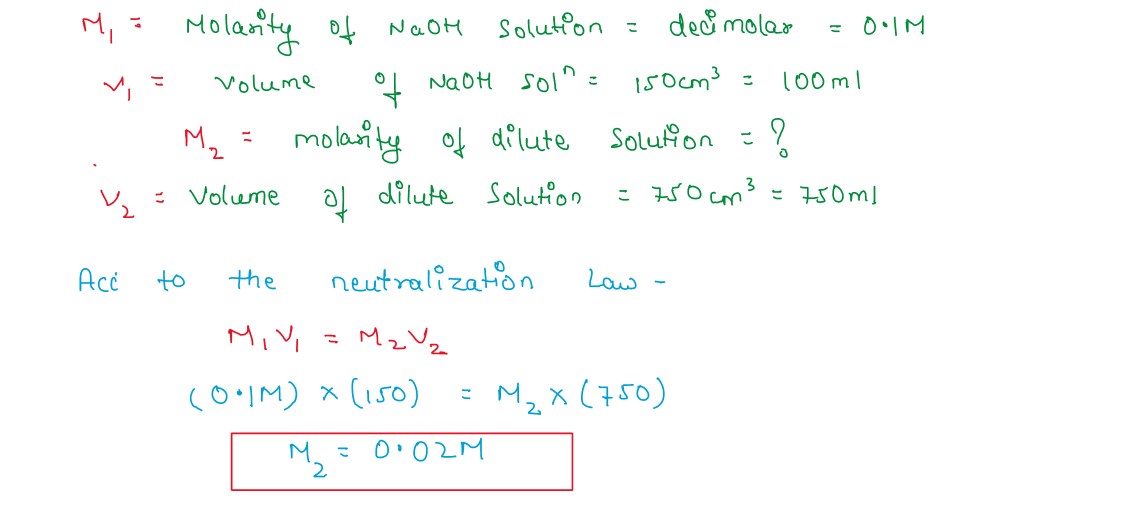 M₁ = Molarity of NaOH Solution = decimolar = 0.1M
V₁ = volume of NaOH solⁿ = 150cm³ = 100ml
M₂ = molarity of dilute Solution = ?
V₂ = Volume of dilute Solution = 750cm³ = 750ml
Acc to the neutralization Law -
M₁V₁ = M₂V₂
(0.1M) × (150) = M₂ × (750)
M₂ = 0.02M